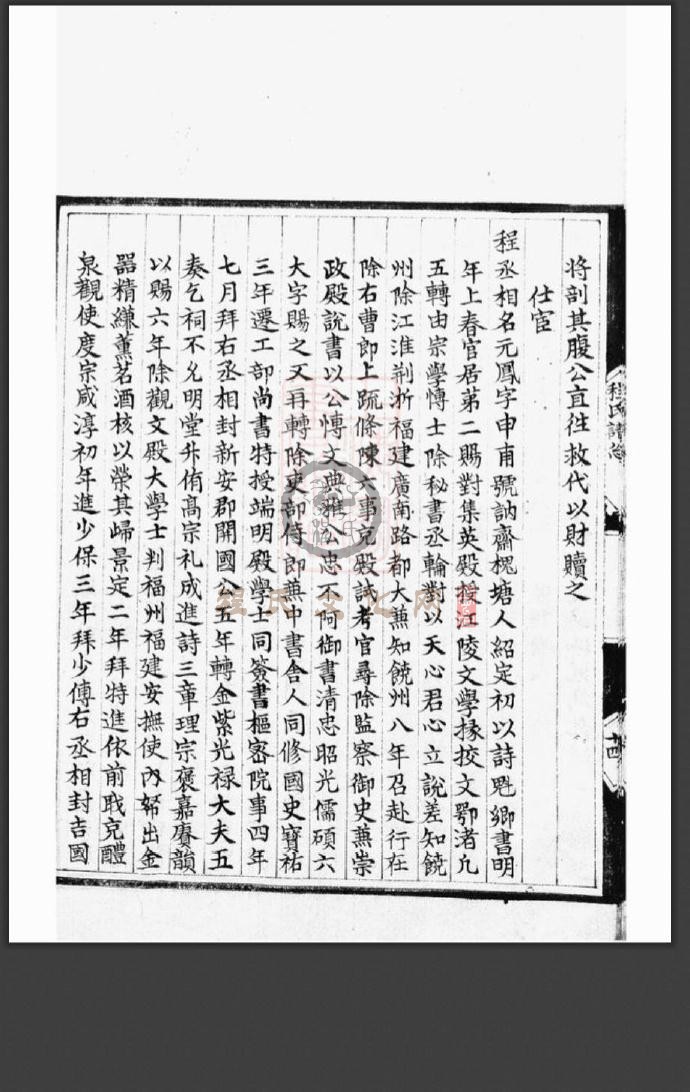 將剖其腹公直往救代以財贖之
仕宦
程丞相名元鳳字申甫號訥齋槐塘人紹定初以詩魁鄉書明
年上春官居第二賜對集英殿授江陵文學掾挍文鄂渚凢
五轉由宗學博士除秘書丞輪對以天心君心立說差知饒
州除江淮荆浙福建廣南路都大蒹知饒州八年召赴行在
除右曹郎上䟽條陳六事克殿試考官尋除監察御史蒹崇
政殿説書以公愽文典雅公忠不阿御書清忠昭光儒碩六
大字賜之又再轉除吏部侍郎蒹中書舎人同修國史寳祐
三年遷工部尚書特授端明殿學士同簽書樞宻院事四年
七月拜右丞相封新安郡開國公五年轉金紫光禄大夫五
奏乞祠不允明堂升侑髙宗礼成進詩三章理宗褒嘉賡韻
以賜六年除觀文殿大學士判福州福建安撫使内帑出金
噐精縑薫茗酒核以榮其歸景定二年拜特進依前職充醴
泉觀使度宗咸淳初年進少保三年拜少傅右丞相封吉國
程氏文化网
程氏譜